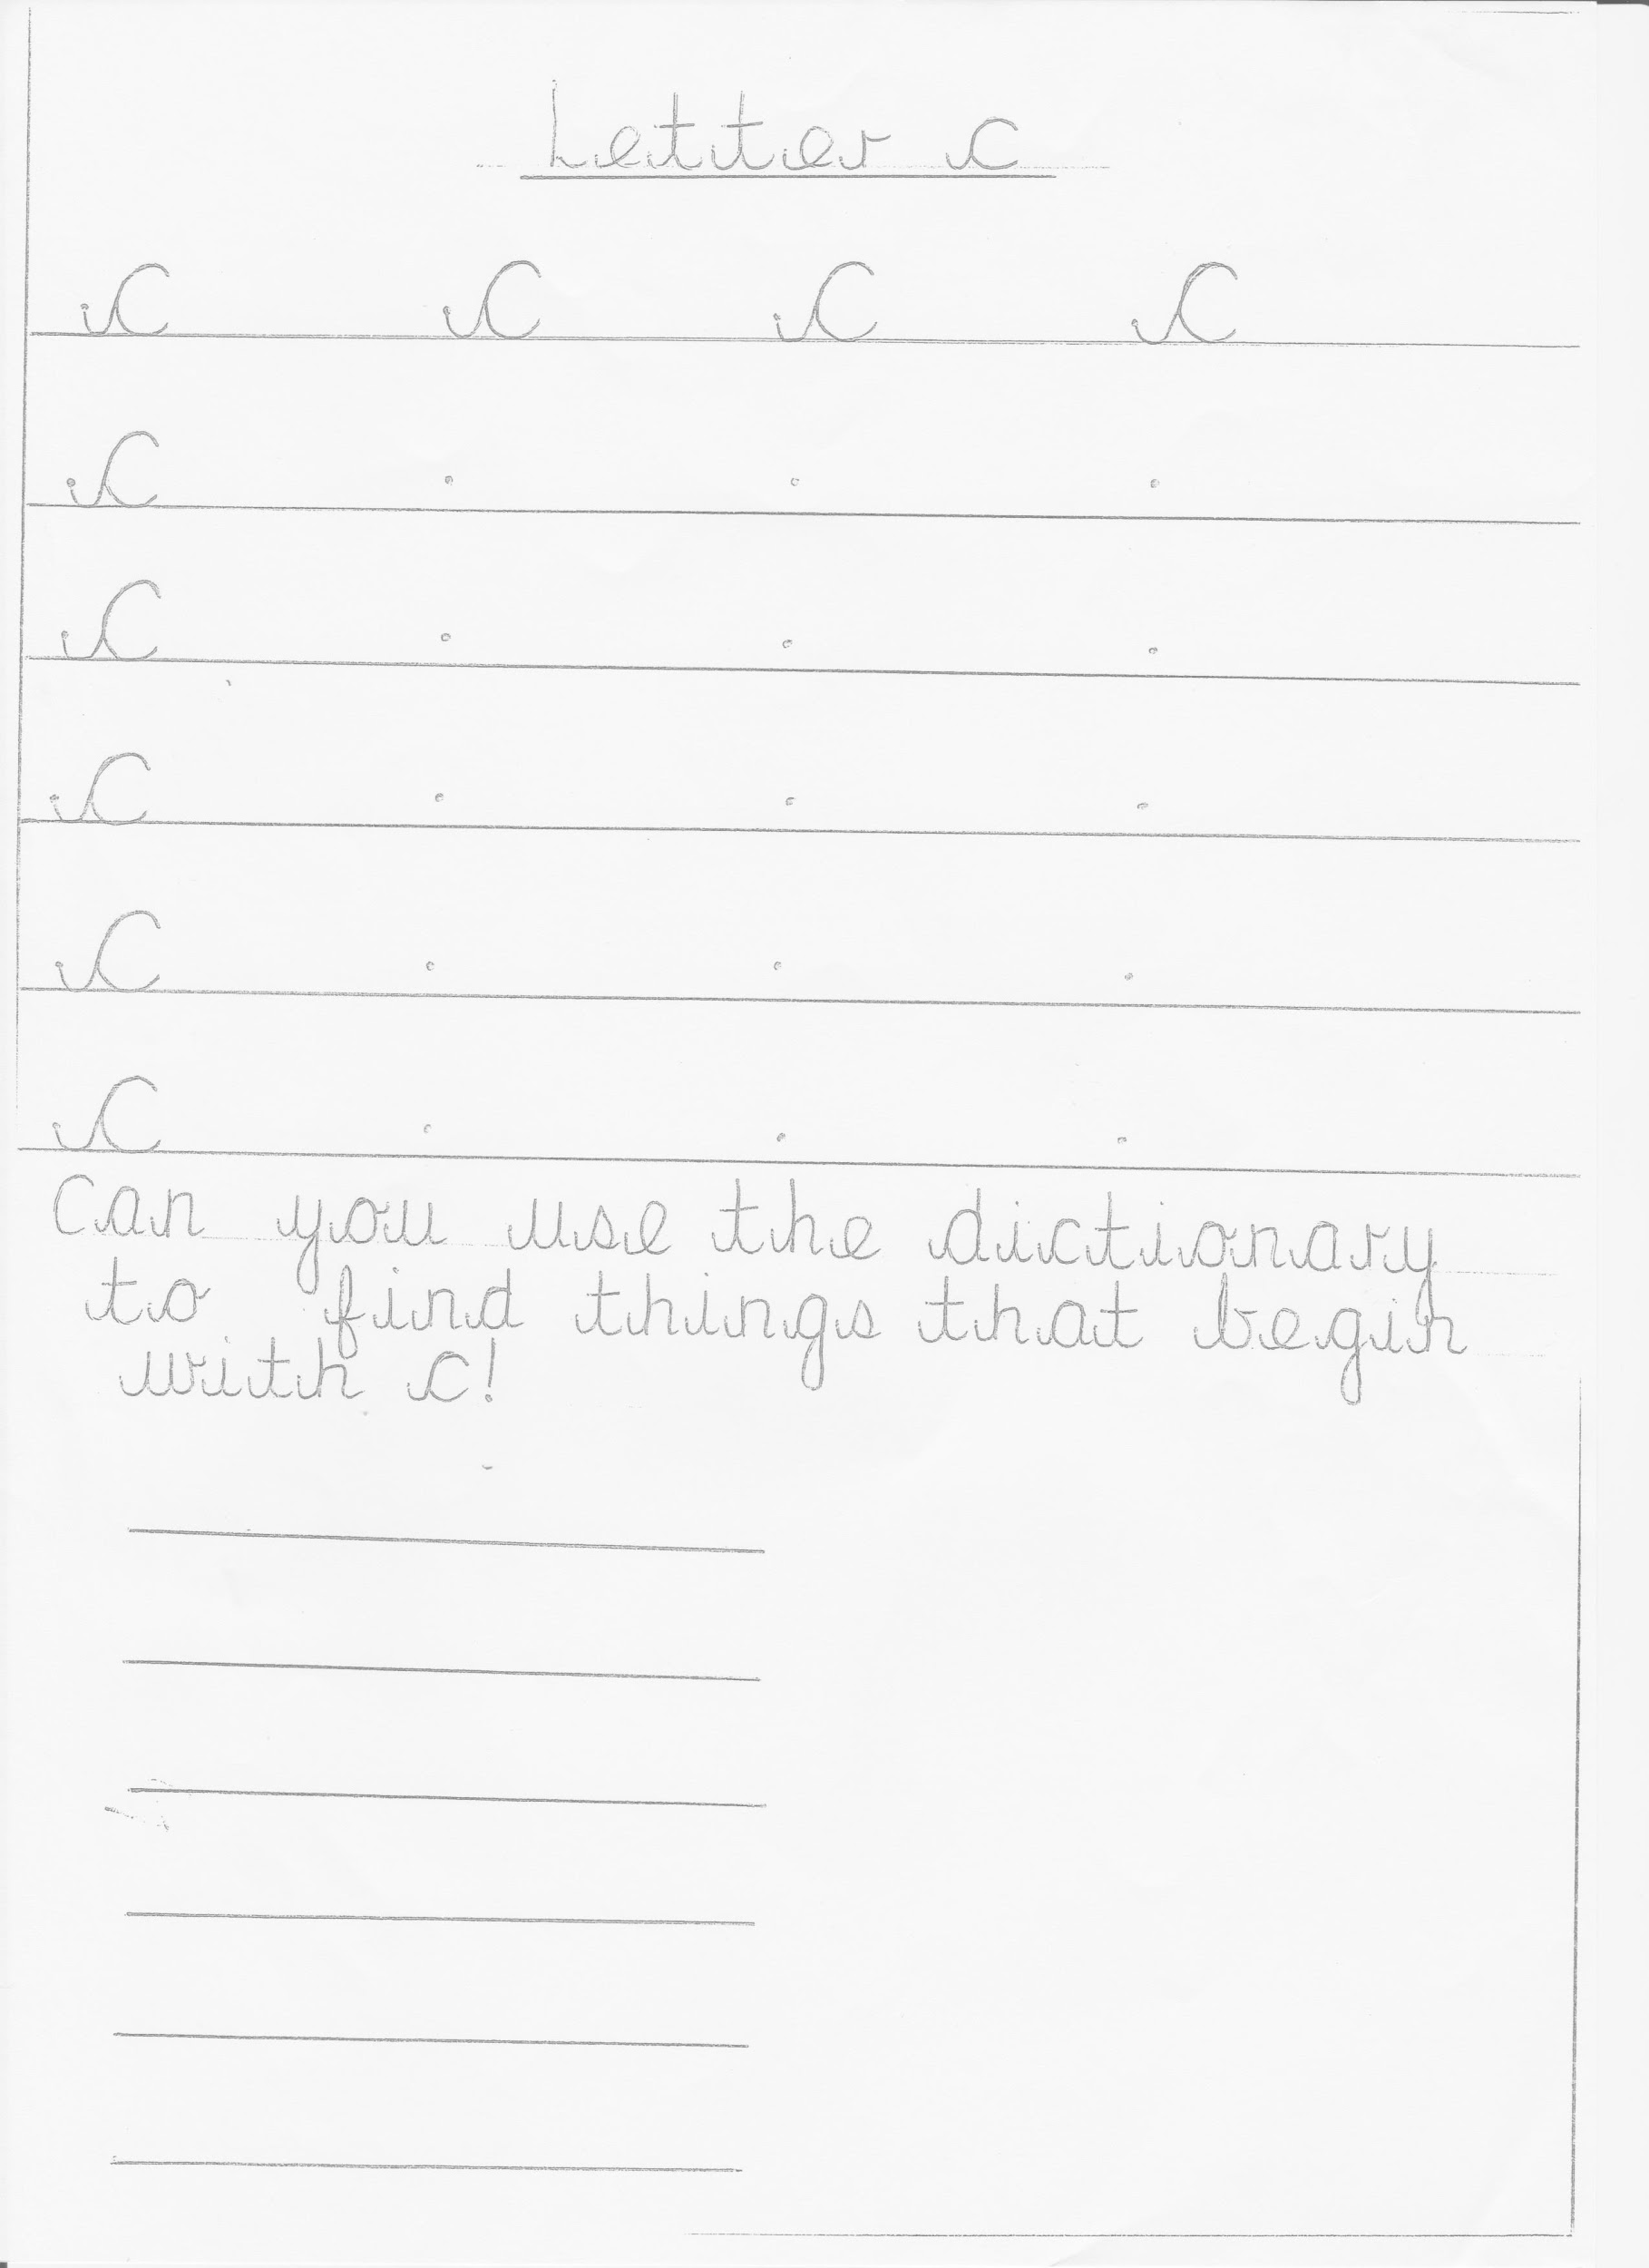 Letter c
c c c c
c
c
c
c
c
Can you use the dictionary
to find things that begin
with c!